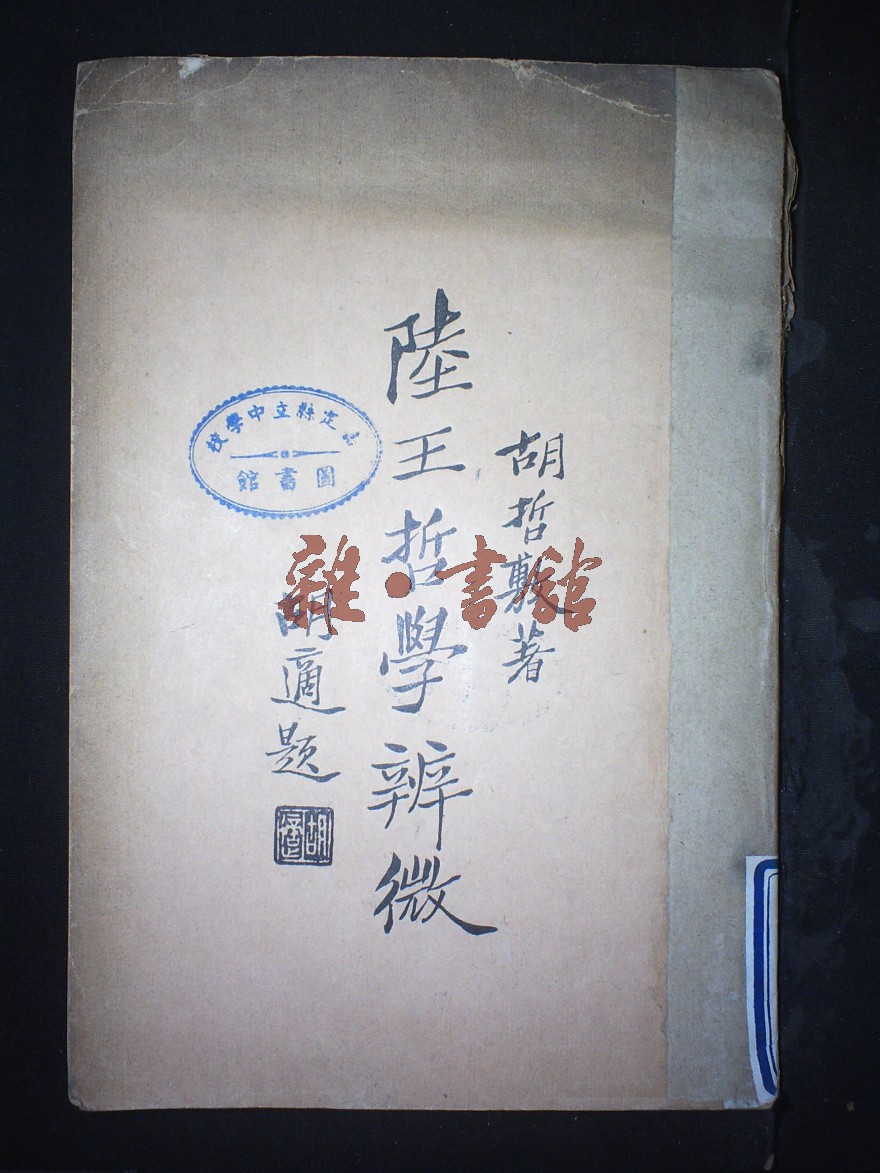 胡哲敷著
陸王哲學辨微
胡適題
胡適
定縣立中學校
圖書館
雜·書館